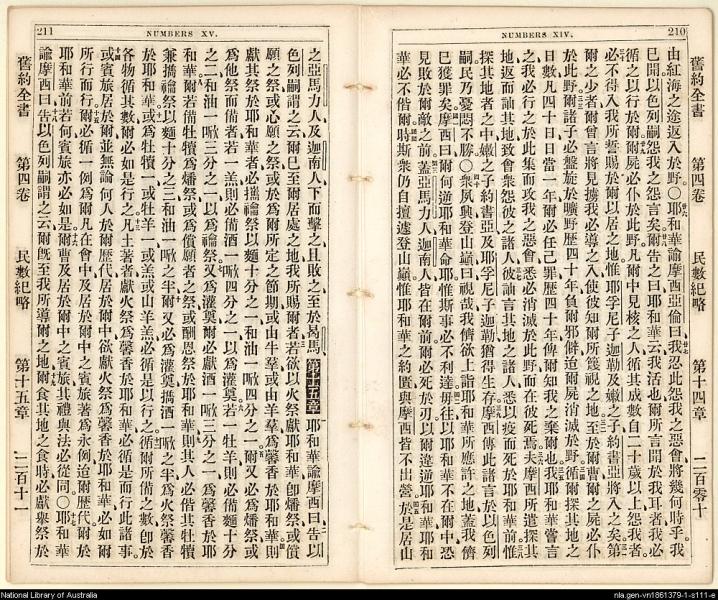 210
NUMBERS XIV.
舊約全書 第四卷 民數紀略 第十四章 二百零十
由紅海之途返入於野○耶和華諭摩西亞倫曰我忍此怨我之惡會將幾何時乎我
已聞以色列嗣怨我之怨言矣爾告之曰耶和華云我活也爾所言聞於我耳者我必
循之以行於爾爾屍必仆於此野凡爾中見核之人循其成數自二十歲以上怨我者
必不得入我所誓賜於爾以居之地惟耶孚尼子迦勒及嫩之子約書亞將入之矣第
爾之少者爾曾言將見擄我必導之入使彼知爾所篾視之地至於爾曹爾之屍必仆
於此野爾諸子必盤旋於曠野歷四十年負爾邪僻迨爾屍消滅於野循爾探其地之
日數凡四十日日當一年爾必任己罪歷四十年俾爾知我之棄爾也我耶和華嘗言
之我必行之於此集而攻我之惡會悉必消滅於此野而在彼死焉夫摩西所遣探其
地返而訕其地致會衆怨彼之諸人彼訕言其地之諸人悉以疫而死於耶和華前惟
探其地者之中嫩之子約書亞及耶孚尼子迦勒猶得生存摩西傳此諸言於以色列
嗣民乃憂悶不勝○衆夙興登山巔曰視哉我儕欲上詣耶和華所應許之地蓋我儕
已獲罪矣摩西曰爾何逆耶和華命耶惟斯事必不利達毋往以耶和華不在爾中恐
見敗於爾敵之前蓋亞馬力人迦南人皆在爾前爾必死於刃以爾違逆耶和華耶和
華必不偕爾時斯衆仍自擅遽登山巔惟耶和華之約匱與摩西皆不出營於是居山
211
NUMBERS XV.
之亞馬力人及迦南人下而擊之且敗之至於曷馬 第十五章 耶和華諭摩西曰告以
色列嗣謂之云爾已至爾居處之地我所賜爾者若欲以火祭獻耶和華卽燔祭或償
願之祭或心願之祭或於爲爾所定之節期或由牛羣或由羊羣爲馨香於耶和華則
獻其祭於耶和華者必攜禴祭以麵十分之一和油一㗿四分之一爾又必爲燔祭或
爲他祭而備者若一羔則必備酒一㗿四分之一以爲灌奠若一牡羊則必備麵十分
之二和油一㗿三分之一以爲禴祭又爲灌奠爾必獻酒一㗿三分之一爲馨香於耶
和華爾若備牡犢爲燔祭或爲償願者之祭或酬恩祭於耶和華則其人必偕其牡犢
兼攜禴祭以麵十分之三和油一㗿之半爾又必爲灌奠攜酒一㗿之半爲火祭馨香
於耶和華或爲牡犢一或牡羊一或羔或山羊羔必循是以行之循爾所備之數卽於
各物循其數爾必如是行之凡土著者獻火祭爲馨香於耶和華必循是而行此諸事
或賓旅居於爾並無論何人於爾歷代居於爾中欲獻火祭爲馨香於耶和華必如爾
所行而行爾必循一例爲爾凡在會中及居於爾中之賓旅著爲永例迨爾歷代爾於
耶和華前若何賓旅亦必如是爾曹及居於爾中之賓旅其禮與法必從同○耶和華
諭摩西曰告以色列嗣謂之云爾旣至我所導爾之地爾食其地之食時必獻舉祭於
舊約全書 第四卷 民數紀略 第十五章 二百十一
National Library of Australia
nla.gen-vn1861379-1-s111-e